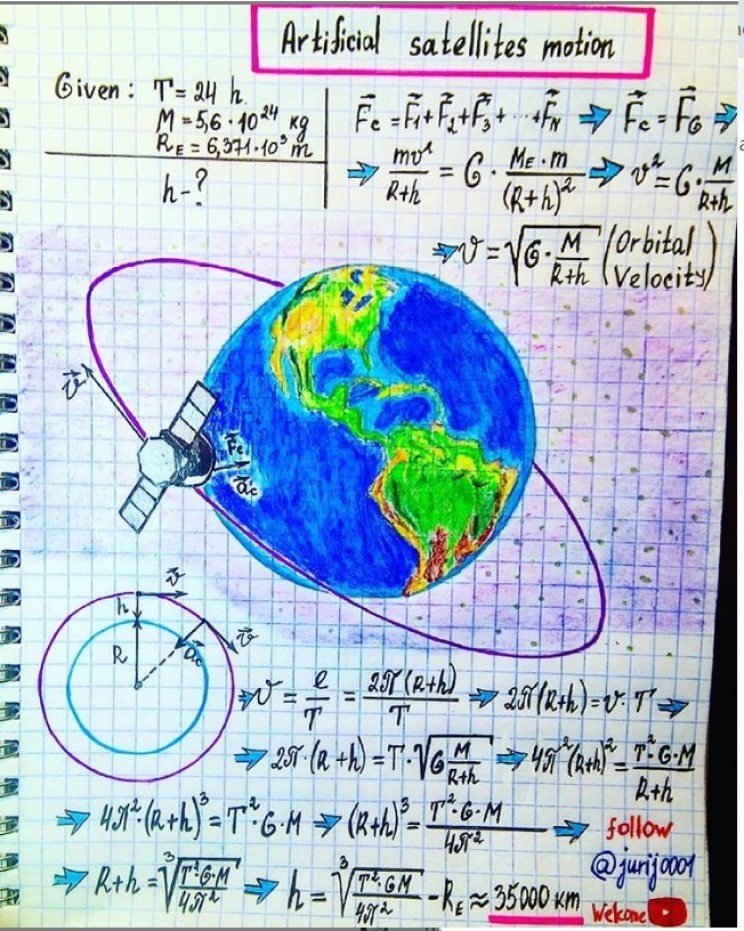 Artificial satellites motion
Given: T = 24 h.
M = 5,6 · 10²⁴ kg
R_E = 6,371 · 10³ m
h - ?
F⃗c = F⃗₁ + F⃗₂ + F⃗₃ + ··· + F⃗N ⇒ F⃗c = F⃗G ⇒
⇒ mv²/(R+h) = G · (M_E · m)/(R+h)² ⇒ v² = G · M/(R+h)
⇒ v = √(G · M/(R+h)) (Orbital Velocity)
v⃗
F⃗c
a⃗c
v⃗
h
v⃗
R
a⃗c
⇒ v = l/T = 2π(R+h)/T ⇒ 2π(R+h) = v · T ⇒
⇒ 2π · (R+h) = T · √(G M/(R+h)) ⇒ 4π²(R+h)² = T² · G · M/(R+h)
⇒ 4π² · (R+h)³ = T² · G · M ⇒ (R+h)³ = T² · G · M/4π² ⇒
follow
@jurij0001
⇒ R+h = ³√(T² · G · M/4π²) ⇒ h = ³√(T² · GM/4π²) - R_E ≈ 35000 km
Welcome